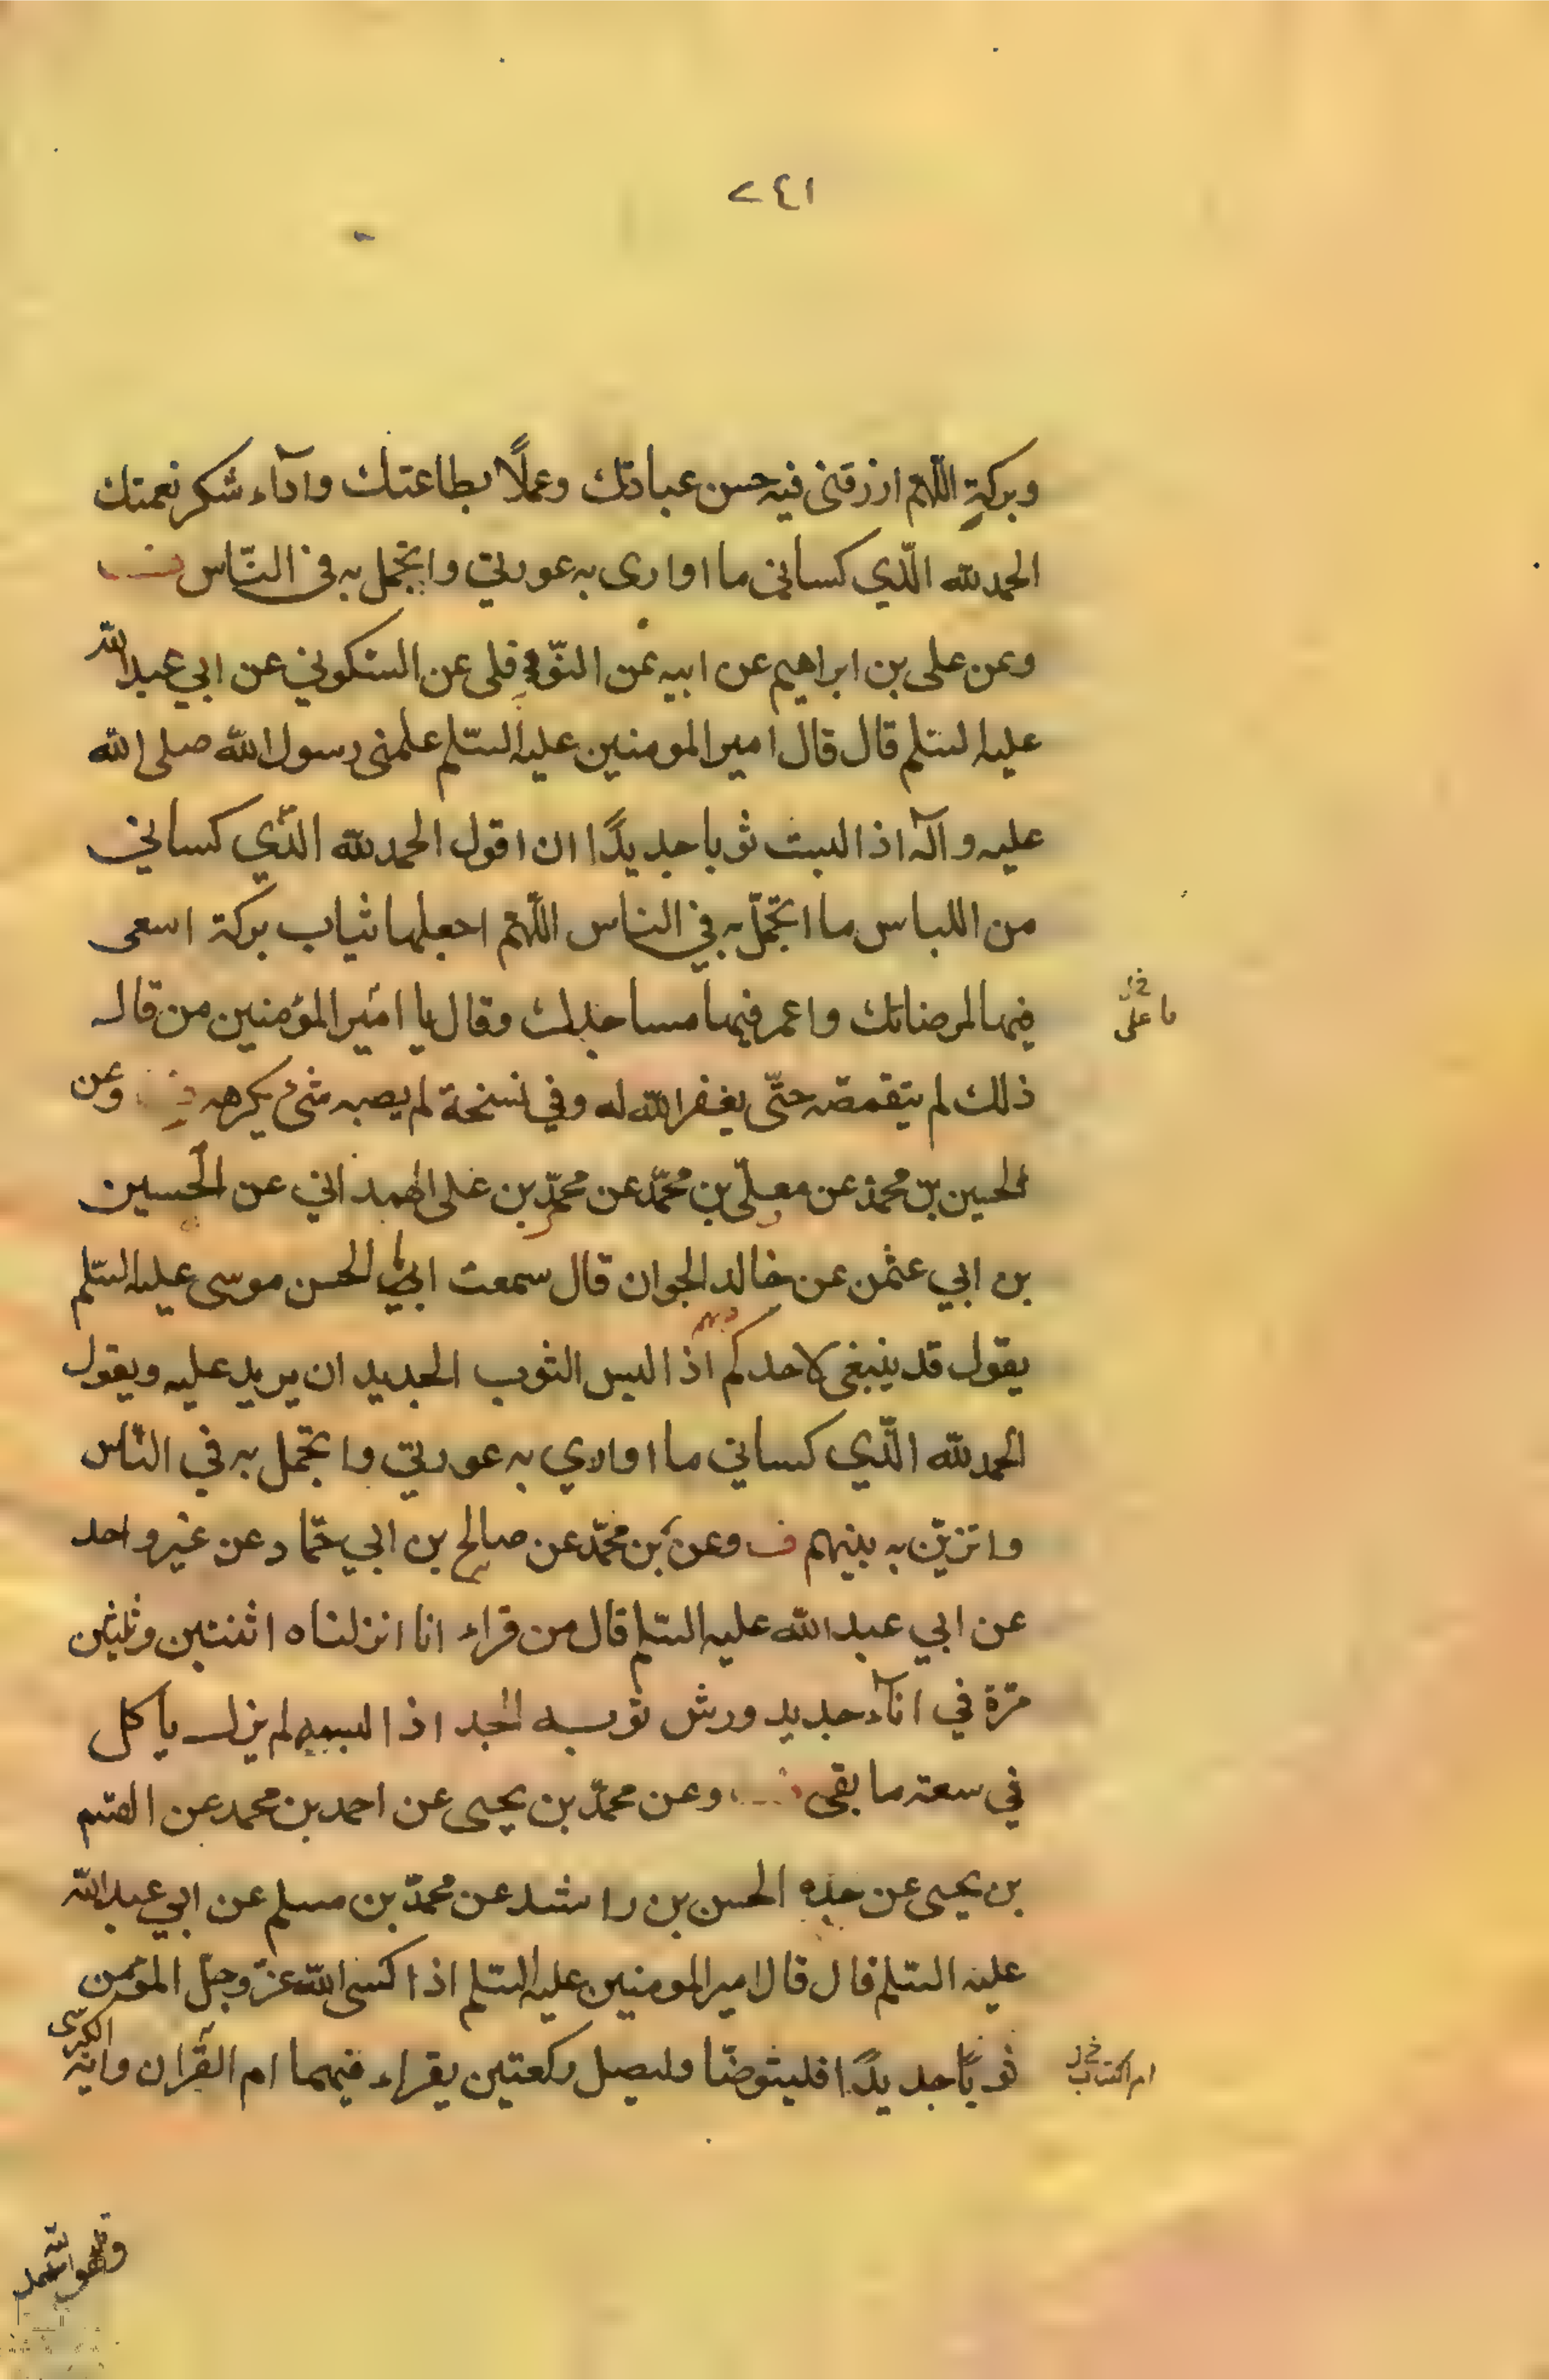 ٢٤١
وبركة اللهم ارزقنى فيه حسن عبادتك وعملًا بطاعتك واداء شكر نعمتك
الحمد لله الّذي كسانى ما اوارى به عورتي واتجمل به فى النّاس
وعن على بن ابراهيم عن ابيه عن النّوفلى عن السّكوني عن ابي عبد الله
عليه السّلم قال قال امير المومنين عليه السّلم علمنى رسول الله صلى الله
عليه وآله اذا لبست ثوبا جديدًا ان اقول الحمد لله الّذي كساني
من اللباس ما اتجمّل به في الناس اللّهم اجعلها ثياب بركة اسعى
فيها لمرضاتك واعمر فيها مساجدك وقال يا امير المؤمنين من قال
ما على
ذلك لم يتقمصه حتّى يغفر الله له وفي نسخة لم يصبه شئ يكرهه وعن
الحسين بن محمد عن معلّى بن محمّد عن محمّد بن على الهمداني عن الحسين
بن ابي عثمن عن خالد الجوان قال سمعت ابا الحسن موسى عليه السّلم
يقول قد ينبغى لاحدكم اذا لبس الثوب الجديد ان يريد عليه ويقول
الحمد لله الّذي كساني ما اواري به عورتي واتجمل به في النّاس
واتزيّن به بينهم ف وعن بن محمّد عن صالح بن ابي حمّاد عن غير واحد
عن ابي عبد الله عليه السّلم قال من قراء انا انزلناه اثنتين وثلثين
مرّة في اناء جديد ورش ثوبه الجد اذا لبسه لم يزل ياكل
في سعة ما بقى وعن محمّد بن يحيى عن احمد بن محمد عن القسم
بن يحيى عن جده الحسن بن راشد عن محمّد بن مسلم عن ابي عبد الله
عليه السّلم قال قال امير المومنين عليه السّلم اذا كسى الله عزّ وجلّ المؤمن
ثوبًا جديدًا فليتوضّا وليصل ركعتين يقراء فيهما ام القرآن واية الكرسى
ام الكتاب
وقل هو الله